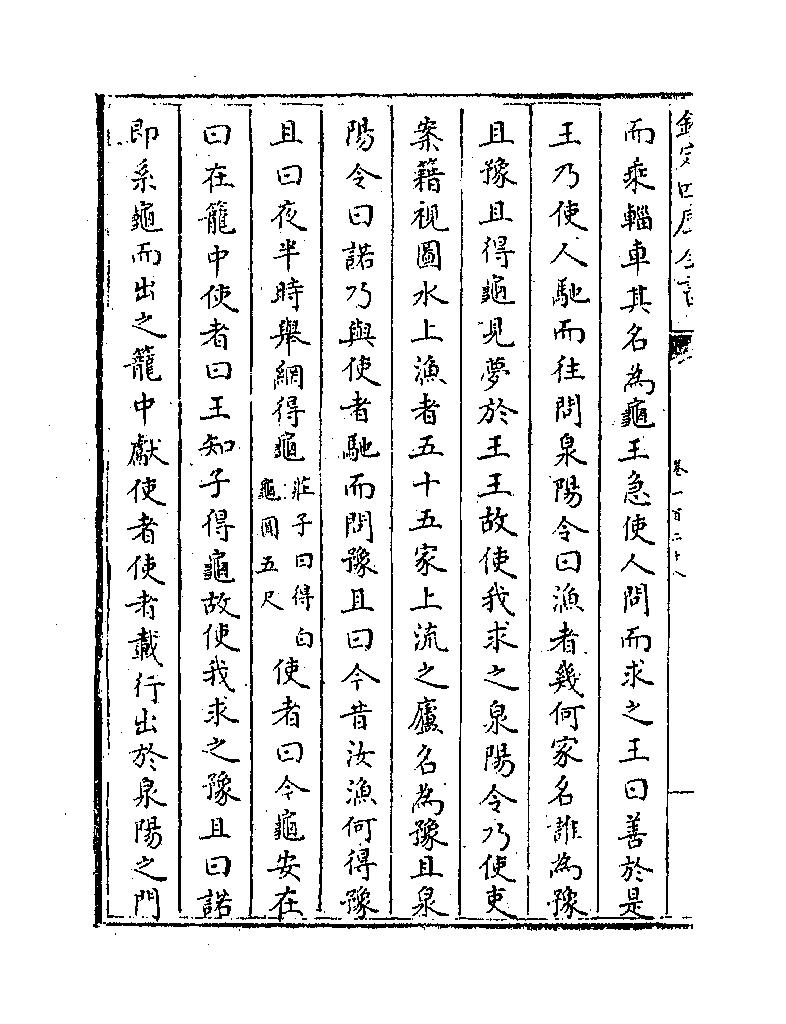 欽定四庫全書 卷一百二十八
而乘輜車其名為龜王急使人問而求之王曰善於是
王乃使人馳而往問泉陽令曰漁者幾何家名誰為豫
且豫且得龜見夢於王王故使我求之泉陽令乃使吏
案籍視圖水上漁者五十五家上流之廬名為豫且泉
陽令曰諾乃與使者馳而問豫且曰今昔汝漁何得豫
且曰夜半時舉網得龜莊子曰得白龜圓五尺使者曰今龜安在
曰在籠中使者曰王知子得龜故使我求之豫且曰諾
即系龜而出之籠中獻使者使者載行出於泉陽之門